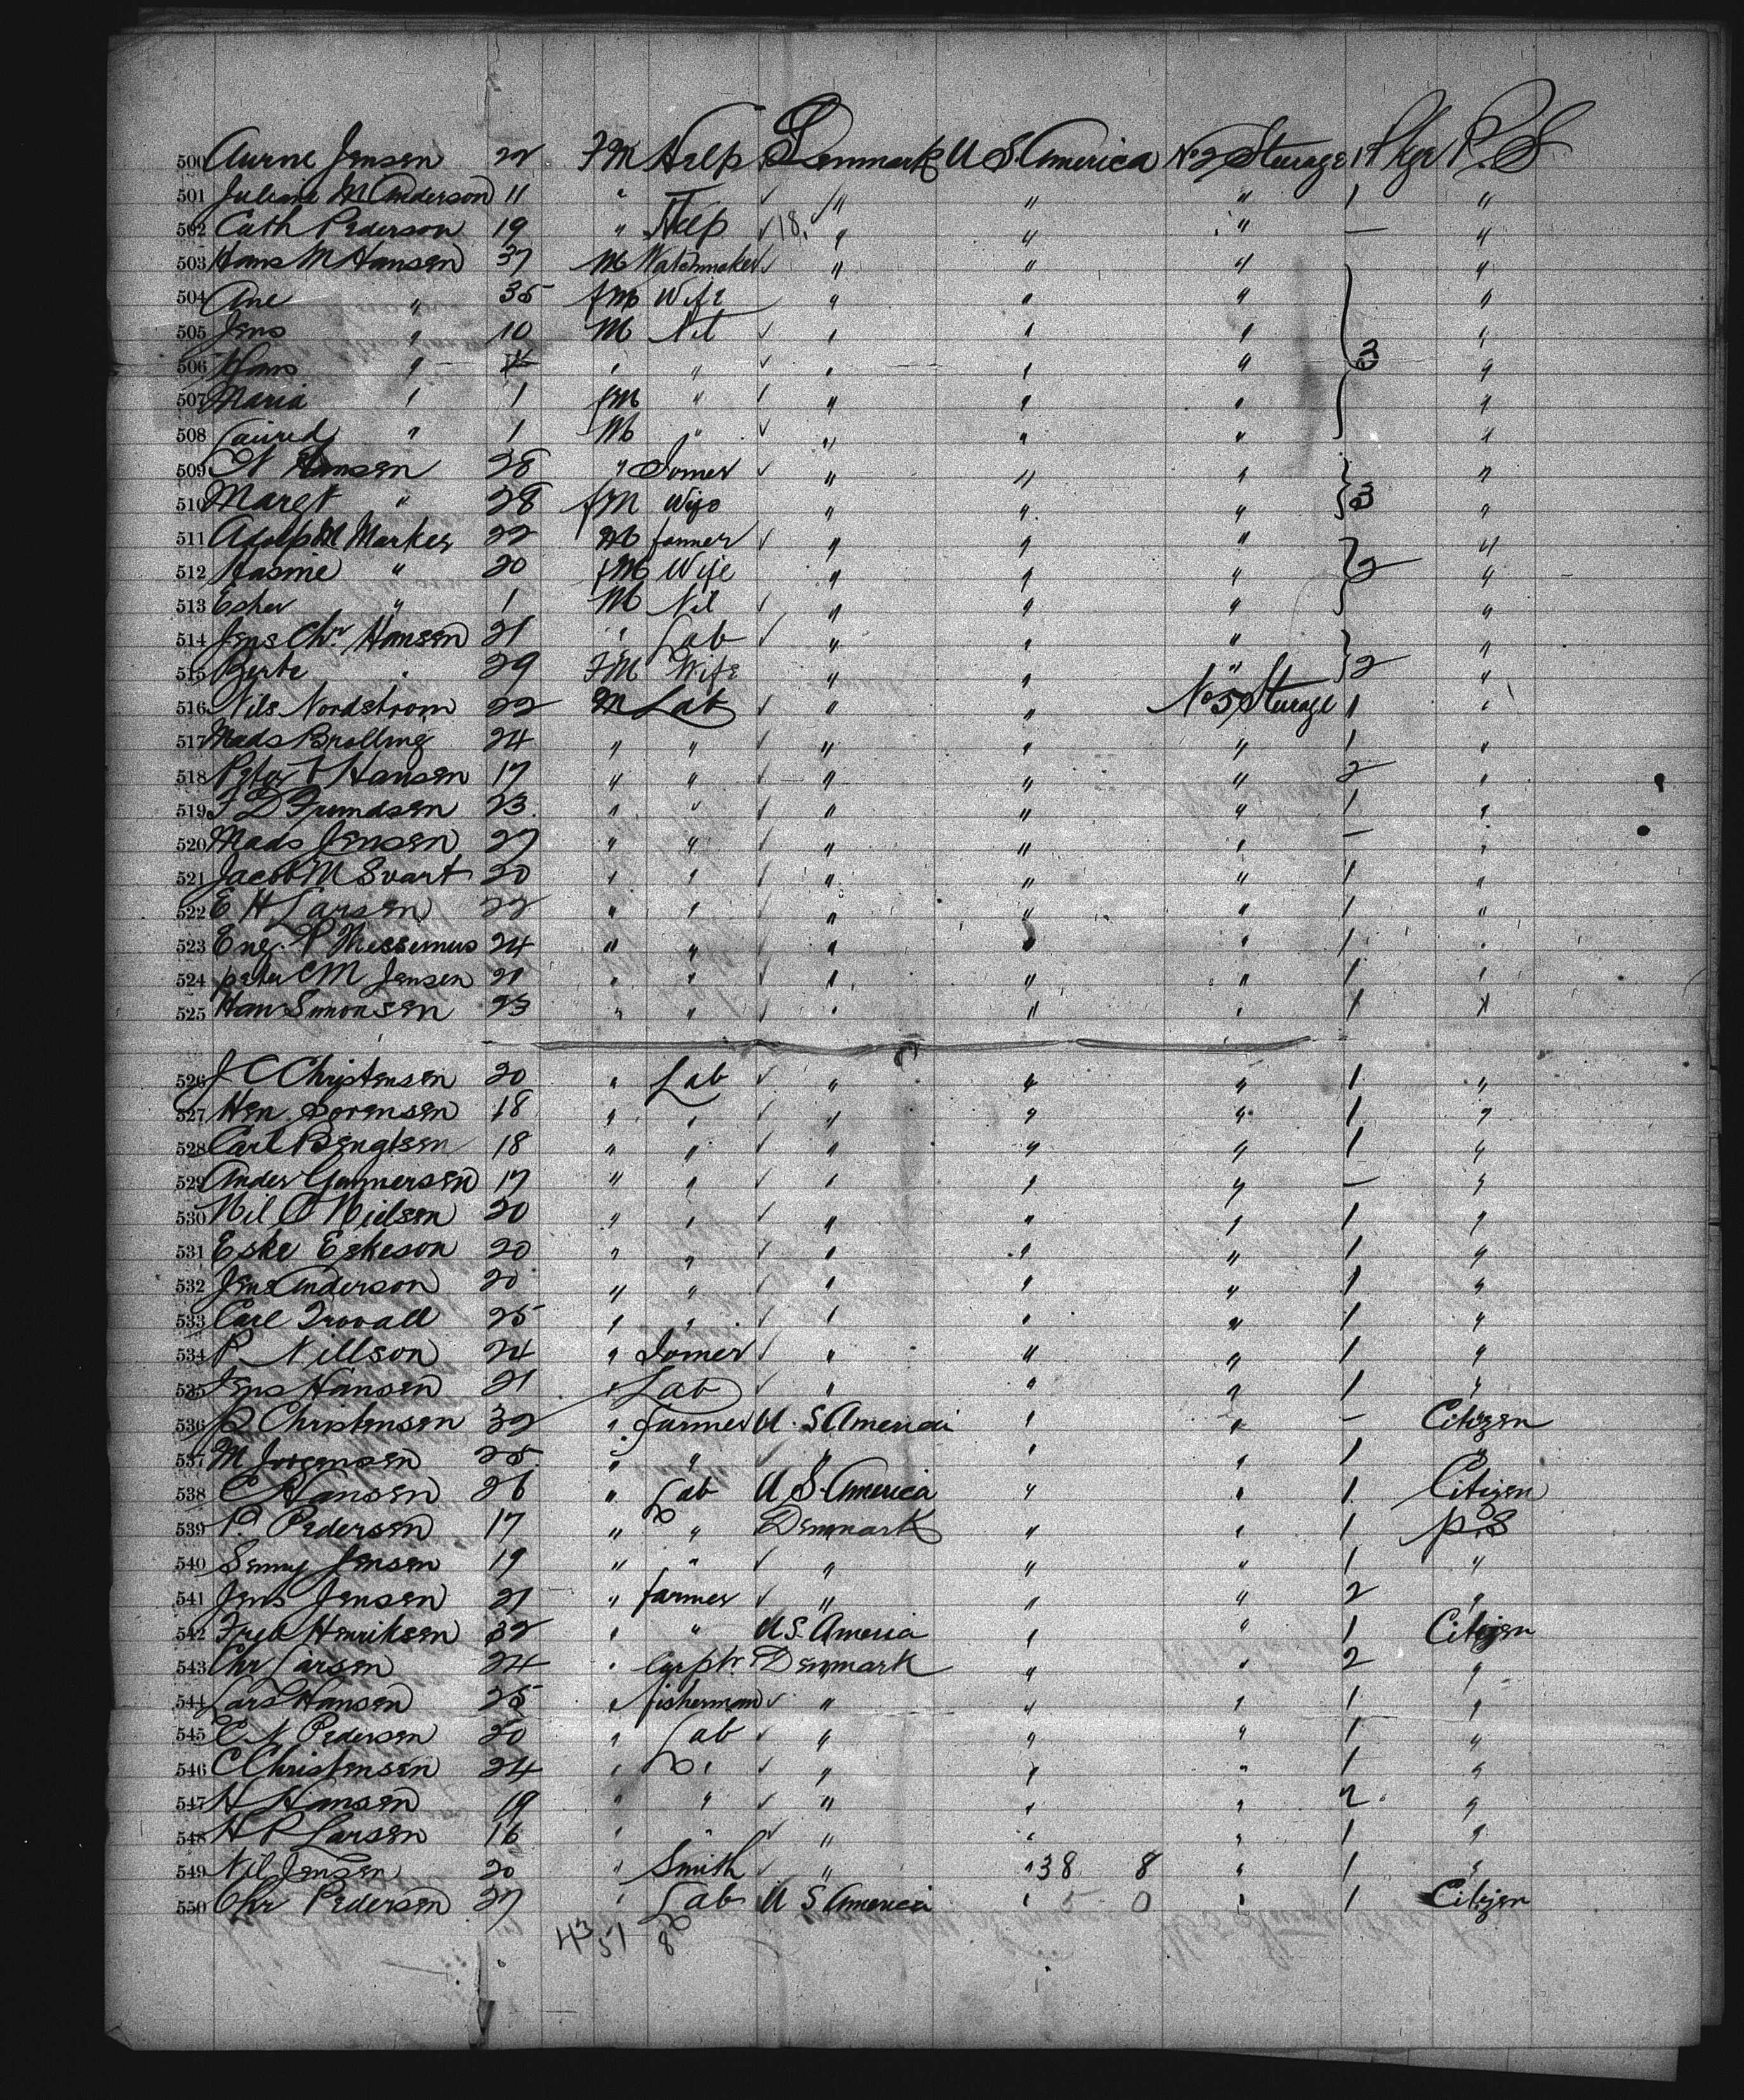 500 Aurne Jensen 22 FM Help Denmark U S. America No 2 Sterage 1 Pkge P. S
501 Juliane M Anderson 11 " ✓ ✓ " " " 1 "
502 Cath Pederson 19 " Help ✓ 18. " " " — "
503 Hans M Hansen 37 M Watchmaker ✓ " " " "
504 Ane " 35 fM Wife " " " "
505 Jens " 10 M Nil ✓ " " " "
506 Hans " " " ✓ " " " 3 "
507 Maria " 1 fM " ✓ " " " "
508 " 1 M " ✓ " " " "
509 N Hansen 28 " Joiner ✓ " " " "
510 Maret " 28 fM Wife " " " 3 "
511 Adolph M Markes 22 M farmer ✓ " " " "
512 Hasine " 20 fM Wife " " " 2 "
513 Esher " 1 M Nil ✓ " " " "
514 Jens Chr. Hansen 21 " Lab ✓ " " " "
515 Berte " 29 FM Wife " " " 2 "
516 Nils Nordstrom 22 M Lab ✓ " " No 5 Sterage 1 "
517 Mads Brolling 24 " " ✓ " " " 1 "
518 Peter Hansen 17 " " ✓ " " " 2 "
519 F D 23. " " ✓ " " " 1 "
520 Mads Jensen 27 " " ✓ " " " — "
521 Jacob M Svart 20 " " ✓ " " " 1 "
522 E H Larsen 22 " " ✓ " " " 1 "
523 Eng. P 24 " " ✓ " " " 1 "
524 peter C M Jensen 21 " " ✓ " " " 1 "
525 Han Simonsen 23 " " ✓ " " " 1 "
526 J C Christensen 20 " Lab ✓ " " " 1 "
527 Hen Sorensen 18 " " ✓ " " " 1 "
528 Carl Bengtsen 18 " " ✓ " " " 1 "
529 Ander Gunnersen 17 " " ✓ " " " — "
530 Nil C Nielsen 20 " " ✓ " " " 1 "
531 Eske Eskeson 20 " " ✓ " " " 1 "
532 Jens Anderson 20 " " ✓ " " " 1 "
533 Carl Trovall 25 " " ✓ " " " 1 "
534 P Nillson 24 " Joiner ✓ " " " 1 "
535 Jens Hansen 21 " Lab ✓ " " " 1 "
536 P Christensen 32 " farmer U. S America " " — Citizen
537 M Jorgensen 25. " " " " " 1 "
538 C Hansen 26 " Lab U S. America " " 1 Citizen
539 P. Pedersen 17 " " Denmark " " 1 P.S
540 Senny Jensen 19 " " ✓ " " " 1 "
541 Jens Jensen 21 " farmer ✓ " " " 2 "
542 Fred Henriksen 32 " " U S. America " " 1 Citizen
543 Chr Larsen 24 " Carptr. Denmark " " 2 "
544 Lars Hansen 25 " fisherman ✓ " " " 1 "
545 C N Pedersen 20 " Lab ✓ " " " 1 "
546 C Christensen 24 " Do ✓ " " " 1 "
547 H Hansen 19 " " ✓ " " " 2 "
548 H P Larsen 16 " " ✓ " " " 1 "
549 Nil Jensen 20 " Smith ✓ " " 38 8 " 1 "
550 Chr Pedersen 27 " Lab U S America " 5 0 " 1 Citizen
43 51 8